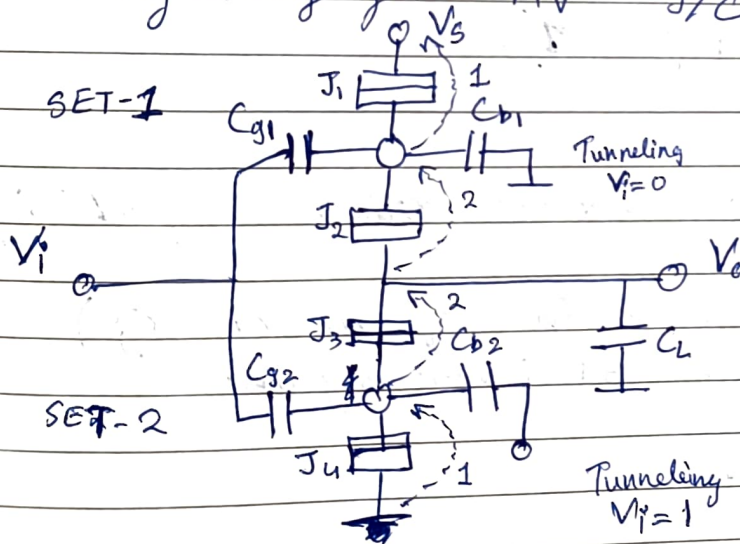 Vs
J1 1
SET-1
Cg1 Cb1
Tunneling
Vi=0
2
J2
Vi
2
J3 Cb2 CL
Cg2
SET-2
J4 1
Tunneling
Vi=1